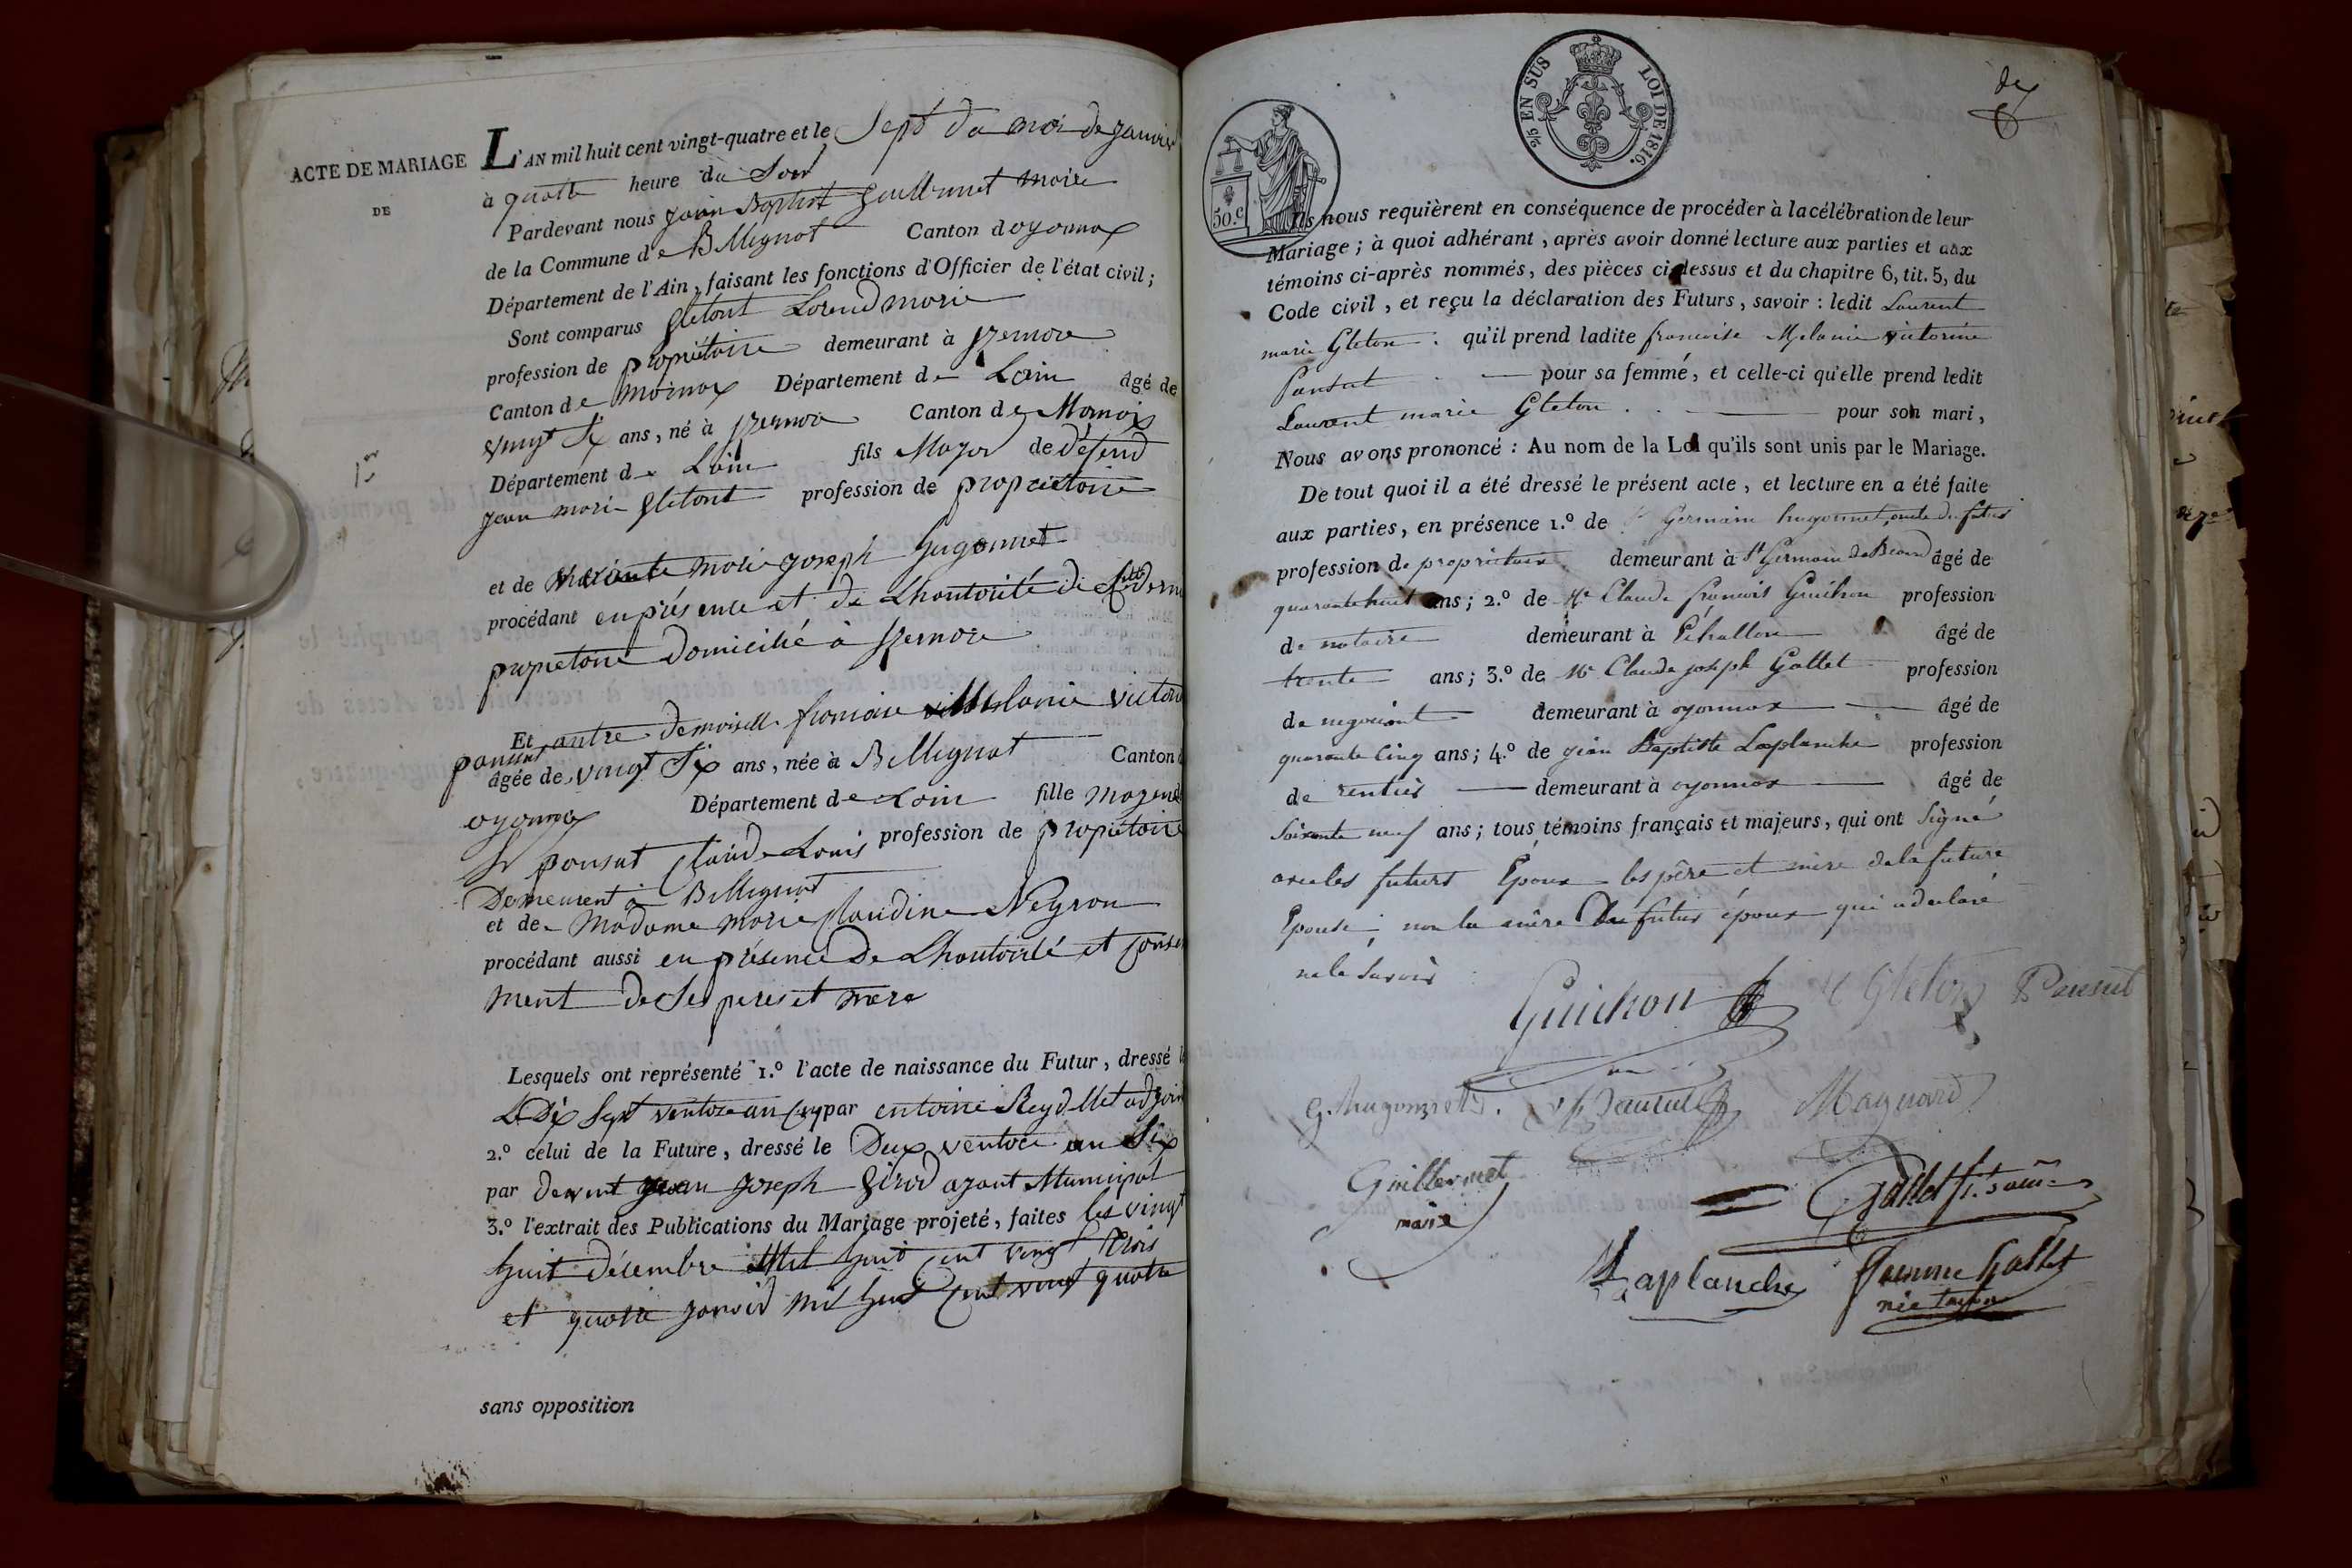 ACTE DE MARIAGE
DE
1er
L'AN mil huit cent vingt-quatre et le Sept du moi de janvier
à quatre heure du Soir
Pardevant nous jean Baptist Guillermet maire
de la Commune de Bellignat Canton doyonnax
Département de l'Ain, faisant les fonctions d'Officier de l'état civil;
Sont comparus gletont Lorend marie
profession de propriétaire demeurant à yzernore
Canton de moirnax Département de Lain âgé de
vingt Six ans, né à yzernore Canton de
Département de Lain fils Major de défend
jean marie gletont profession de proprietaire
et de marie joseph hugonnet
procédant en présence et de Lhoutorité de
proprietaire Domicilié à yzernore
Et autre demoiselle francoise Melanie victor
ponsut
âgée de vingt Six ans, née à Bellignat Canton
oyonnax Département de Lain fille
Sr ponsut Claude Louis profession de propietaire
Demeurent à Bellignat
et de Madame marie Claudine Neyron
procédant aussi en présence De Lhoutorité et conse
ment de Ses peres et mere
Lesquels ont représenté 1.º l'acte de naissance du Futur, dressé le
Le Dix Sept ventose an par entoine Reydellet adjoin
2.º celui de la Future, dressé le Deux ventose an Six
par devent jean joseph Girod agant Municipal
3.º l'extrait des Publications du Mariage projeté, faites les vingt
huit décembre Mil huit cent vingt trois
et quatre janvier mil huit cent vingt quatre
sans opposition
2/5 EN SUS LOI DE 1816.
50.c
Ils nous requièrent en conséquence de procéder à la célébration de leur
Mariage; à quoi adhérant, après avoir donné lecture aux parties et aux
témoins ci-après nommés, des pièces ci dessus et du chapitre 6, tit. 5, du
Code civil, et reçu la déclaration des Futurs, savoir: ledit Laurent
marie Gleton. qu'il prend ladite francoise Melanie victorine
Ponsut pour sa femme, et celle-ci qu'elle prend ledit
Laurent marie Gleton. pour son mari,
Nous avons prononcé: Au nom de la Loi qu'ils sont unis par le Mariage.
De tout quoi il a été dressé le présent acte, et lecture en a été faite
aux parties, en présence 1.º de Sr Germain hugonnet, oncle du futur
profession de proprietaire demeurant à St Germain de Beard âgé de
quarante huit ans; 2.º de Me Claude francois Guichon profession
de notaire demeurant à âgé de
trente ans; 3.º de Mr Claude joseph Gallet profession
de negociant demeurant à oyonnax âgé de
quarante Cinq ans; 4.º de jean Baptiste Laplanche profession
de rentier demeurant à oyonnax âgé de
Soixante neuf ans; tous témoins français et majeurs, qui ont Signé
avec les futurs Epoux les père et mère de la future
Epouse; non la mère du futur époux qui a declaré
ne le Savoir
Guichon Gleton Ponsut
G. hugonnet. Ponsut Maynard
Guillermet
maire
Gallet
Laplanche femme Gallet
née